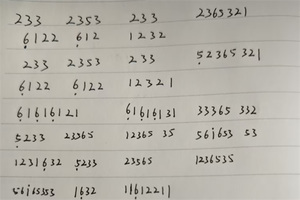 233 2353 233 2365321
6̣122 6̣12 1232
233 2353 233 5̣2365321
6̣122 6̣122 12321
6̣16̣16̣121 6̣16̣16̣131 33365 332
5̣233 23565 12365 35 561̇653 53
12316̣32 5̣233 23565 1236535
561̇65353 16̣32 116̣12211